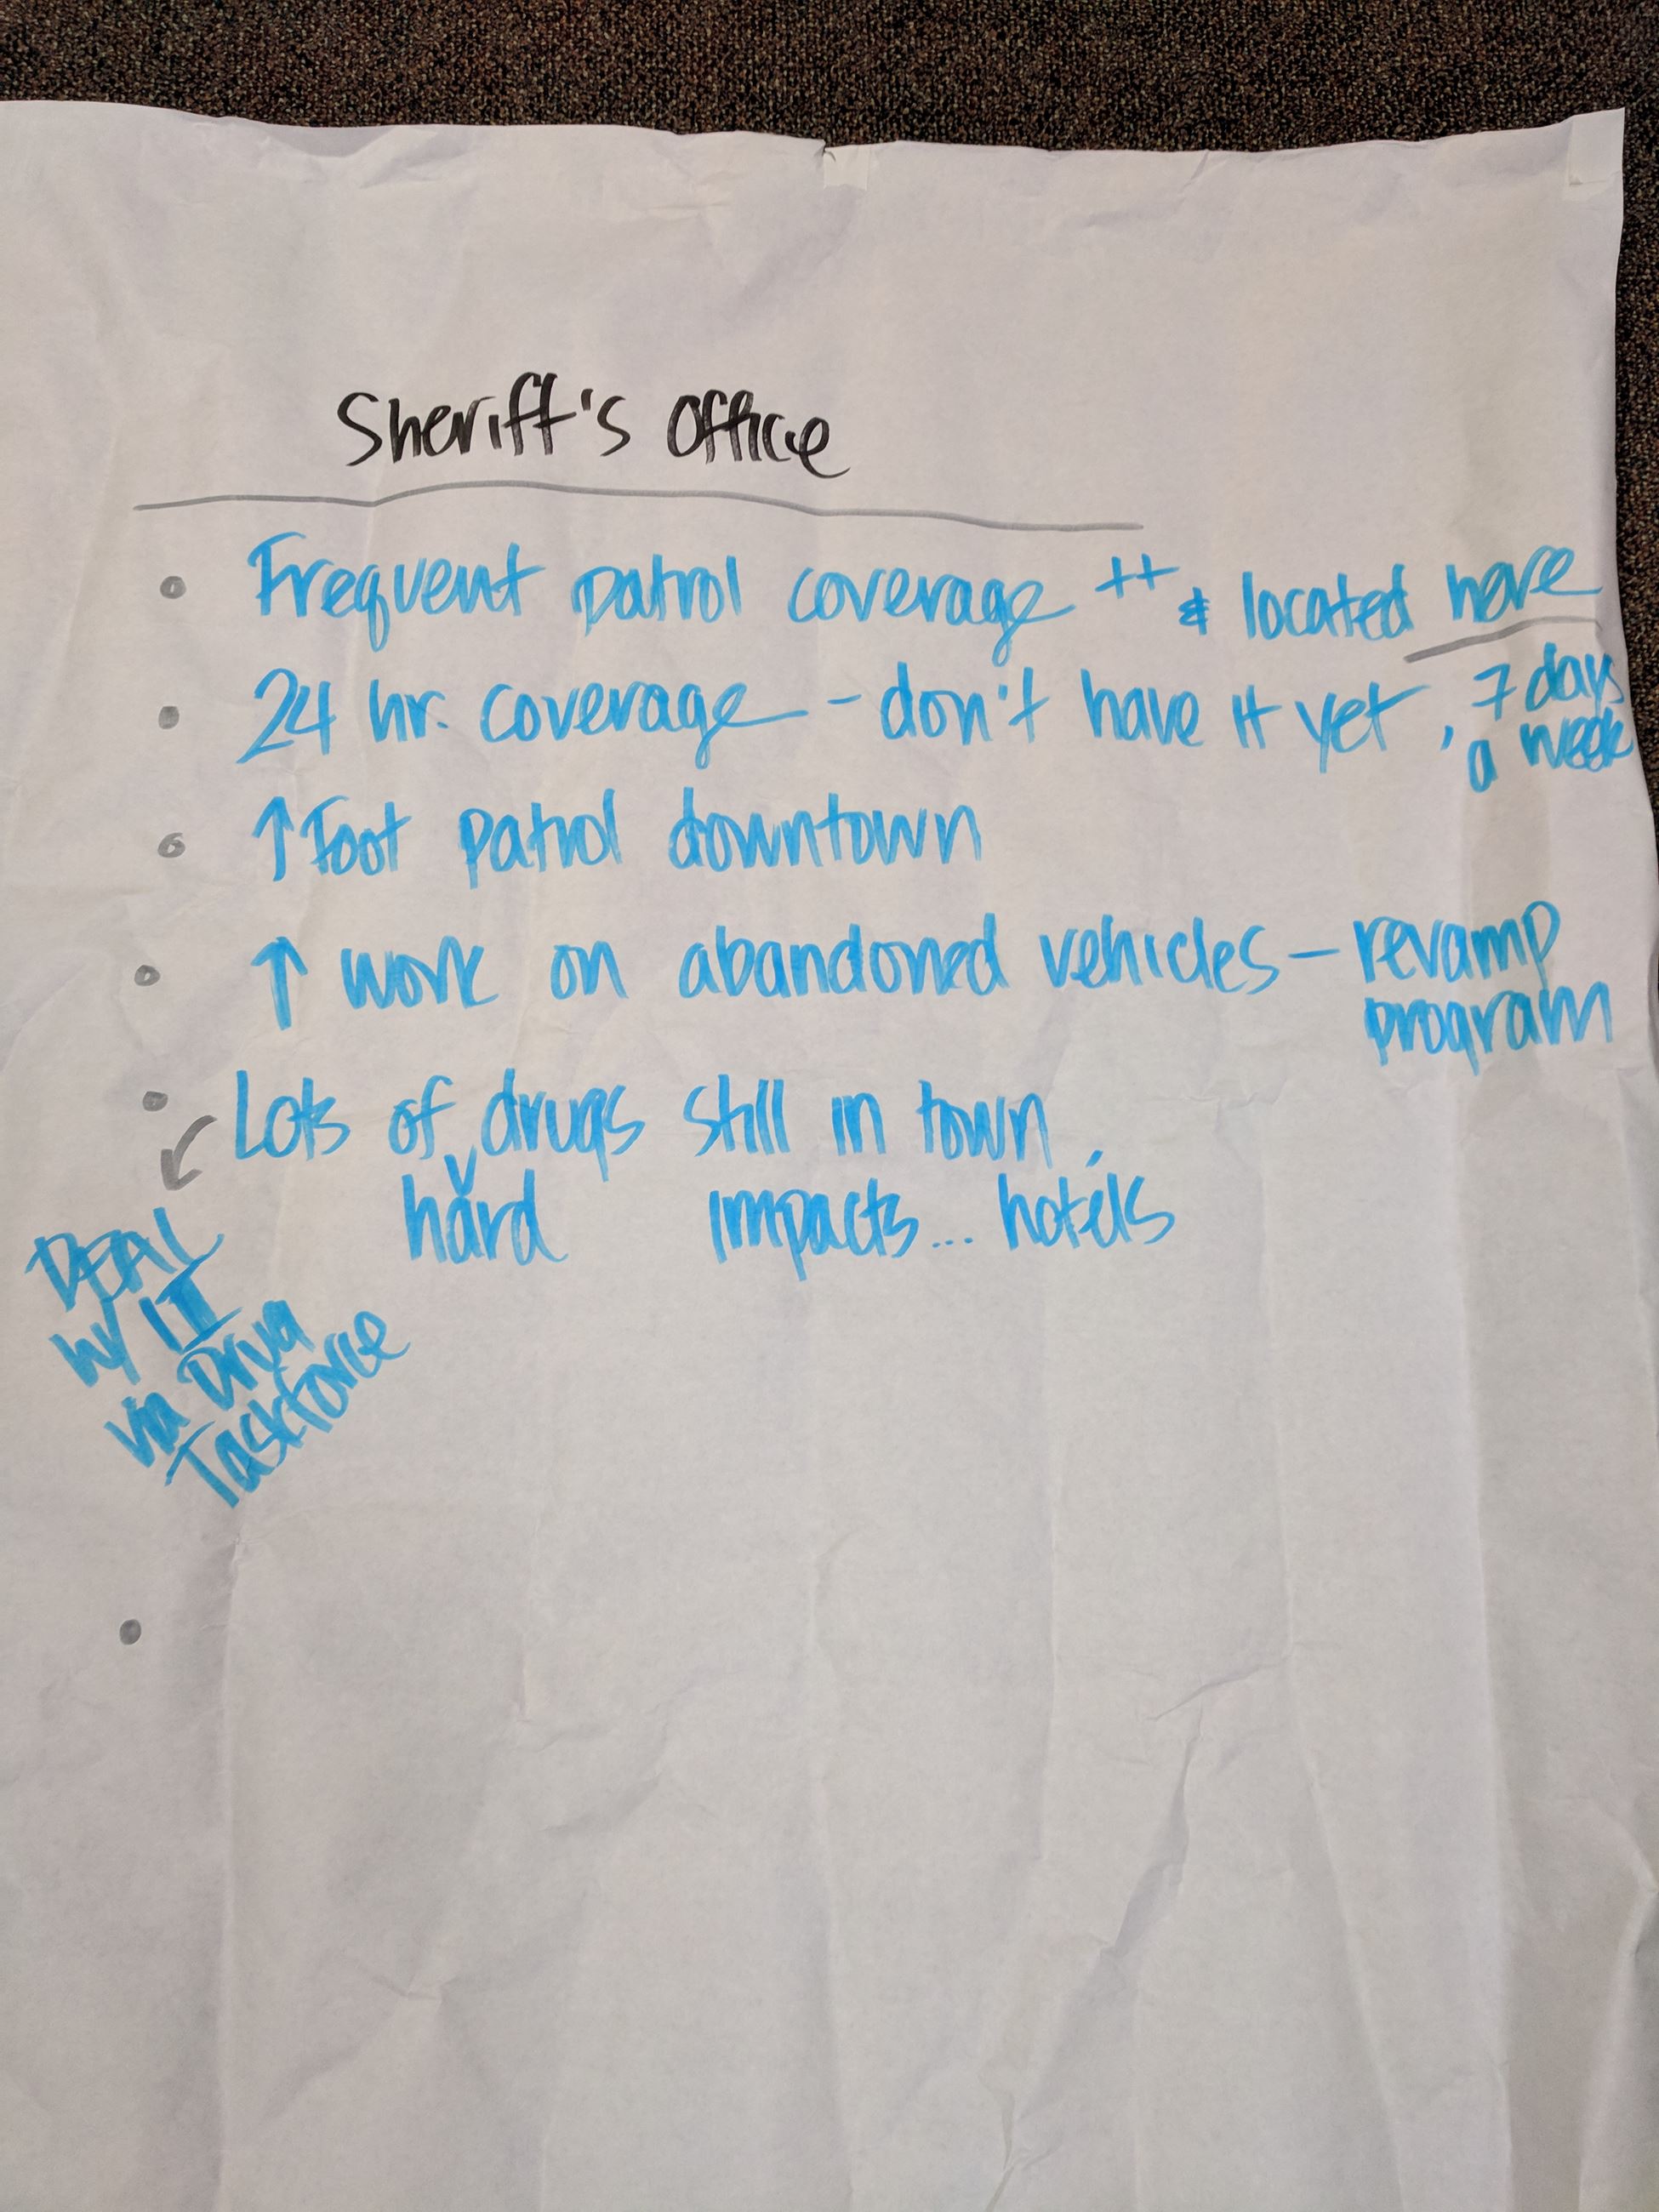 Sheriff's Office
• Frequent patrol coverage ++ & located here
• 24 hr. coverage - don't have it yet, 7 days
a week
• ↑ Foot patrol downtown
• ↑ work on abandoned vehicles - revamp
program
• Lots of hard drugs still in town,
impacts... hotels
DEAL
w/ IT
via Drug
Taskforce
•